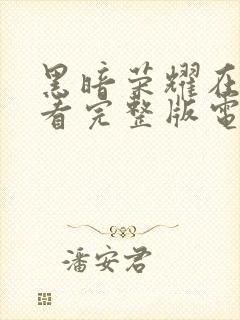 黑暗荣耀在
看完整版電
潘安君